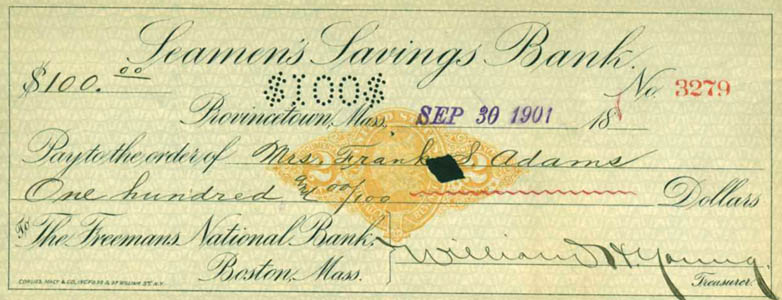 Seamen's Savings Bank.
$100.00
$100$
No. 3279
Provincetown, Mass. SEP 30 1901 18
Pay to the order of Mrs. Frank S. Adams
One hundred and 00/100 Dollars
To The Freemans National Bank,
Boston, Mass.
William H. Young
Treasurer.